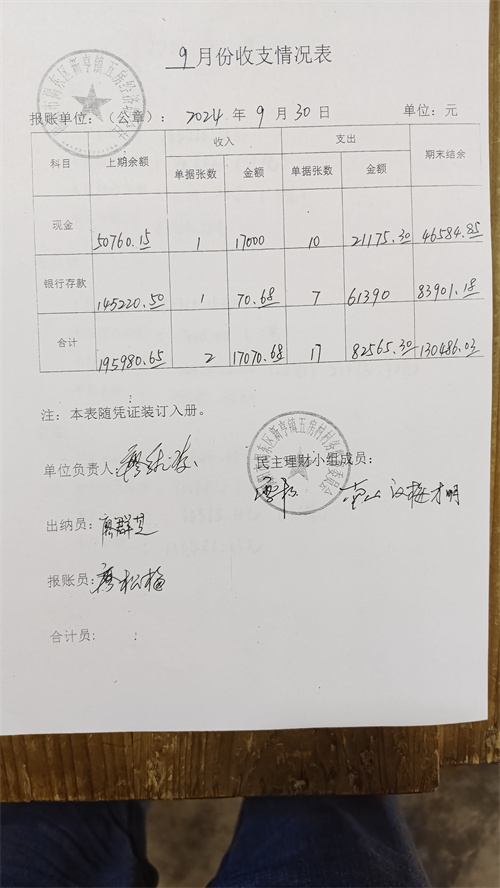 9月份收支情况表
报账单位：（公章）： 2024 年 9 月 30 日 单位：元
科目 上期余额 收入 支出 期末结余
单据张数 金额 单据张数 金额
现金 50760.15 1 17000 10 21175.30 46584.85
银行存款 145220.50 1 70.68 7 61390 83901.18
合计 195980.65 2 17070.68 17 82565.30 130486.03
注：本表随凭证装订入册。
单位负责人：
民主理财小组成员：
出纳员：
报账员：廖松梅
合计员：